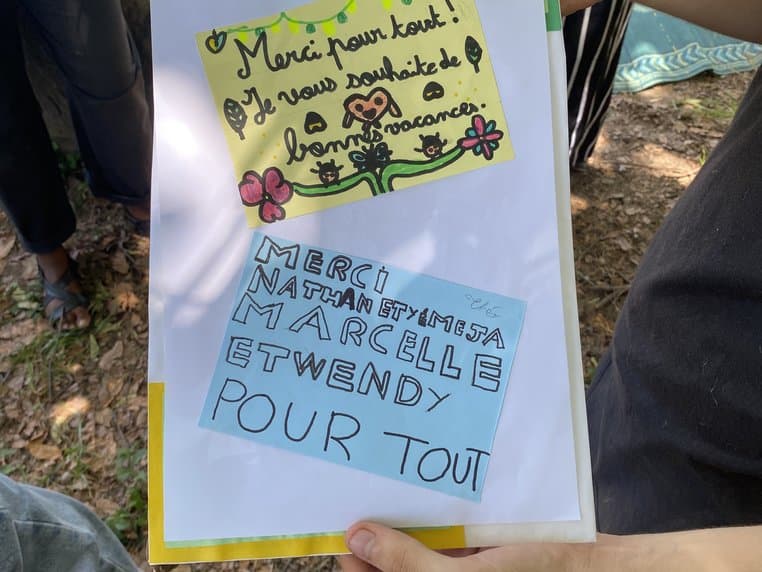 Merci pour tout !
Je vous souhaite de
bonnes vacances.
MERCI
NATHAN ET YÉMEJA
MARCELLE
ET WENDY
POUR TOUT